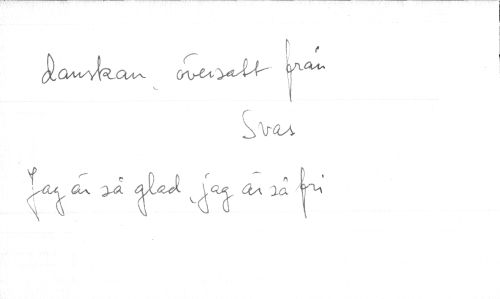 danskan, översatt från
Svas
Jag är så glad, jag är så fri